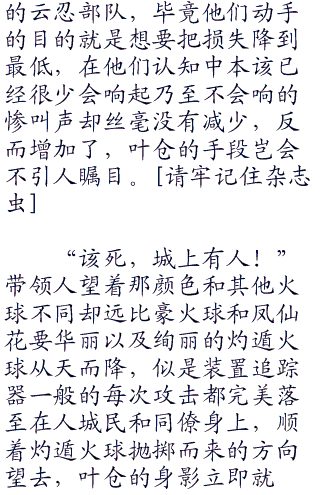 的云忍部队，毕竟他们动手
的目的就是想要把损失降到
最低，在他们认知中本该已
经很少会响起乃至不会响的
惨叫声却丝毫没有减少，反
而增加了，叶仓的手段岂会
不引人瞩目。[请牢记住杂志
虫]
“该死，城上有人！”
带领人望着那颜色和其他火
球不同却远比豪火球和凤仙
花要华丽以及绚丽的灼遁火
球从天而降，似是装置追踪
器一般的每次攻击都完美落
至在人城民和同僚身上，顺
着灼遁火球抛掷而来的方向
望去，叶仓的身影立即就